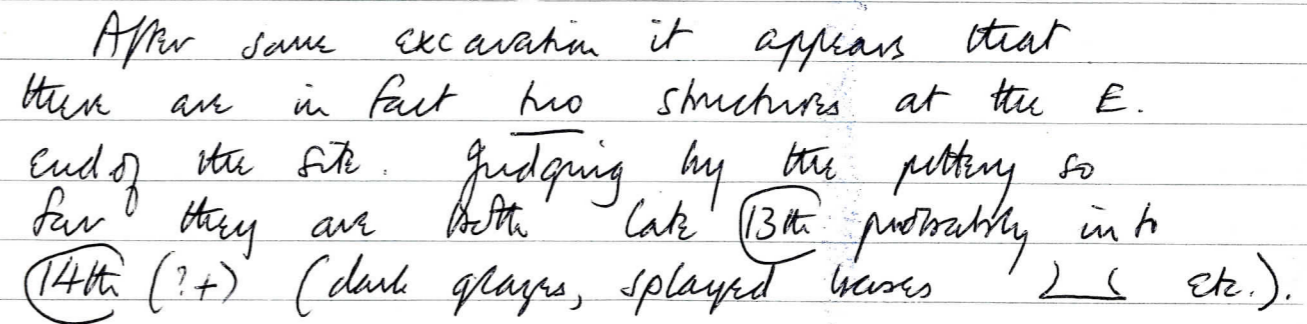 After some excavation it appears that
there are in fact two structures at the E.
end of the site. Judging by the pottery so
far they are both late 13th probably into
14th (?+) (dark glazes, splayed bases etc.).